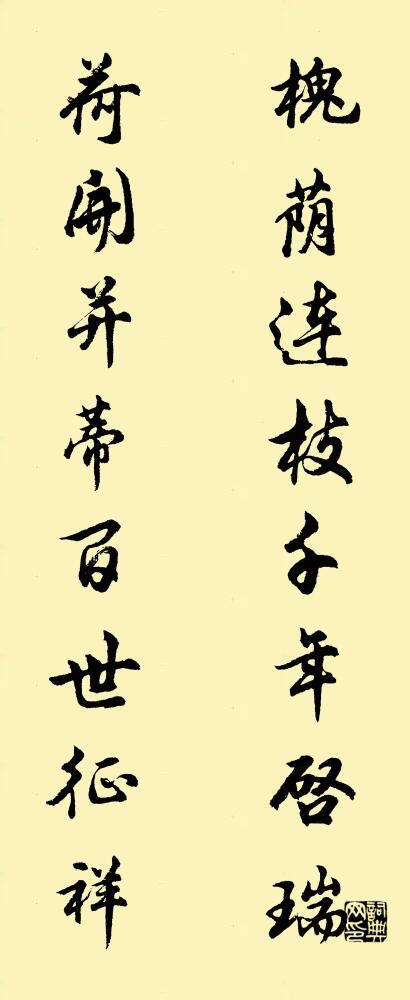 槐荫连枝千年启瑞
荷開并蒂百世征祥
詞典网印